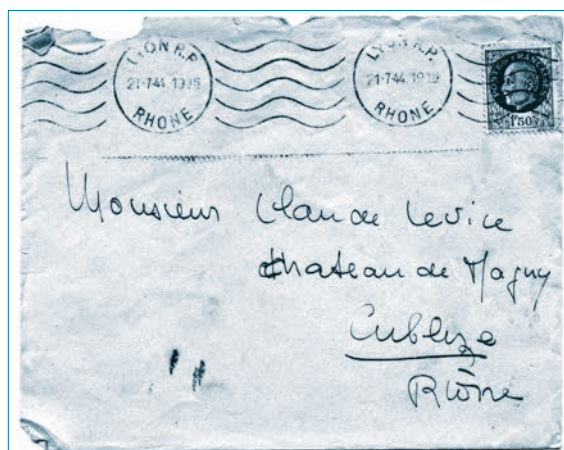 LYON R.P.
21-7-44
RHONE
LYON R.P.
21-7-44
RHONE
1F50
Monsieur Claude Levice
chateau de Magny
Cublize
Rhône